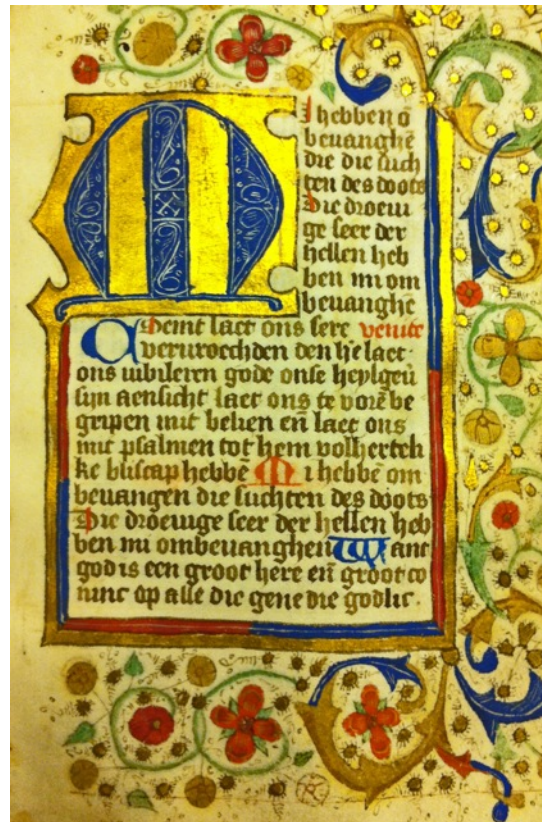 MI hebben ō
beuanghē
die die such
ten des doots
Die droeui
ge seer der
hellen heb
ben mi om
beuanghē
laet ons sere venite
veruroechden den hē laet
ons iubileren gode onse heylgeū
sijn aensicht laet ons te vorē be
gripen mit belien eñ laet ons
mit psalmen tot hem volherteli
ke bliscap hebbē Mi hebbē om
beuangen die suchten des doots
Die droeuige seer der hellen heb
ben mi ombeuanghen Want
god is een groot here eñ groot co
ninc op alle die gene die godlic.